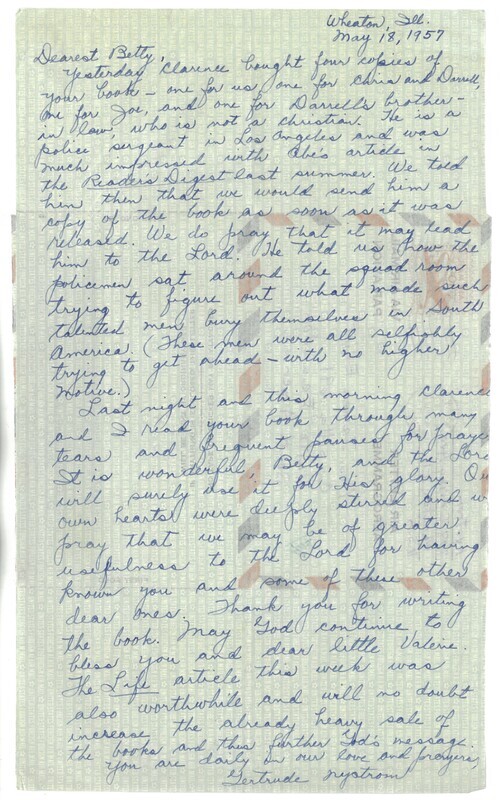 Wheaton, Ill.
May 18, 1957
Dearest Betty,
Yesterday Clarence bought four copies of
your book – one for us, one for Chris and Darrell,
one for Joe, and one for Darrell's brother-
in law, who is not a Christian. He is a
police sergeant in Los Angeles and was
much impressed with Abe's article in
the Reader's Digest last summer. We told
him then that we would send him a
copy of the book as soon as it was
released. We do pray that it may lead
him to the Lord. He told us how the
policemen sat around the squad room
trying to figure out what made such
talented men bury themselves in South
America. (These men were all selfishly
trying to get ahead – with no higher
motive.)
Last night and this morning Clarence
and I read your book through many
tears and frequent pauses for praye
It is wonderful, Betty, and the Lord
will surely use it for His glory. Ou
own hearts were deeply stirred and w
pray that we may be of greater
usefulness to the Lord for having
known you and some of these other
dear ones. Thank you for writing
the book. May God continue to
bless you and dear little Valerie.
The Life article this week was
also worthwhile and will no doubt
increase the already heavy sale of
the books and thus further God's message.
You are daily in our love and prayers,
Gertrude Nystrom